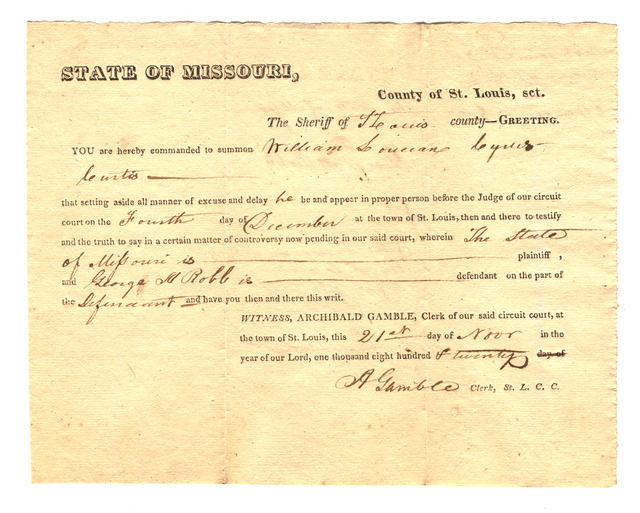 STATE OF MISSOURI,
County of St. Louis, sct.
The Sheriff of St Louis county—GREETING.
YOU are hereby commanded to summon William Cyrus
Curtis
that setting aside all manner of excuse and delay he be and appear in proper person before the Judge of our circuit
court on the Fourth day of December at the town of St. Louis, then and there to testify
and the truth to say in a certain matter of controversy now pending in our said court, wherein The State
of Missouri is plaintiff,
and George H Robb is defendant on the part of
the Defendant and have you then and there this writ.
WITNESS, ARCHIBALD GAMBLE, Clerk of our said circuit court, at
the town of St. Louis, this 21st day of Novr in the
year of our Lord, one thousand eight hundred & twenty day of
A Gamble Clerk, St. L. C. C.